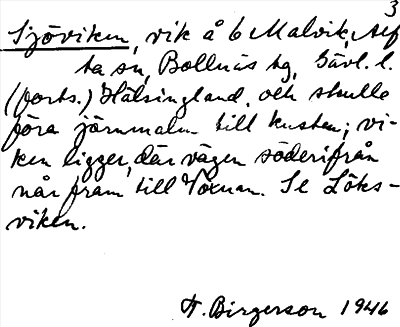 3
Sjöviken, vik å 6 Malvik, Alf
ta sn, Bollnäs tg, Gävl. l.
(forts.) Hälsingland, och skulle
föra järnmalm till kusten; vi-
ken ligger, där vägen söderifrån
når fram till Voxnan. Se Löks-
viken.
F. Birgerson 1946